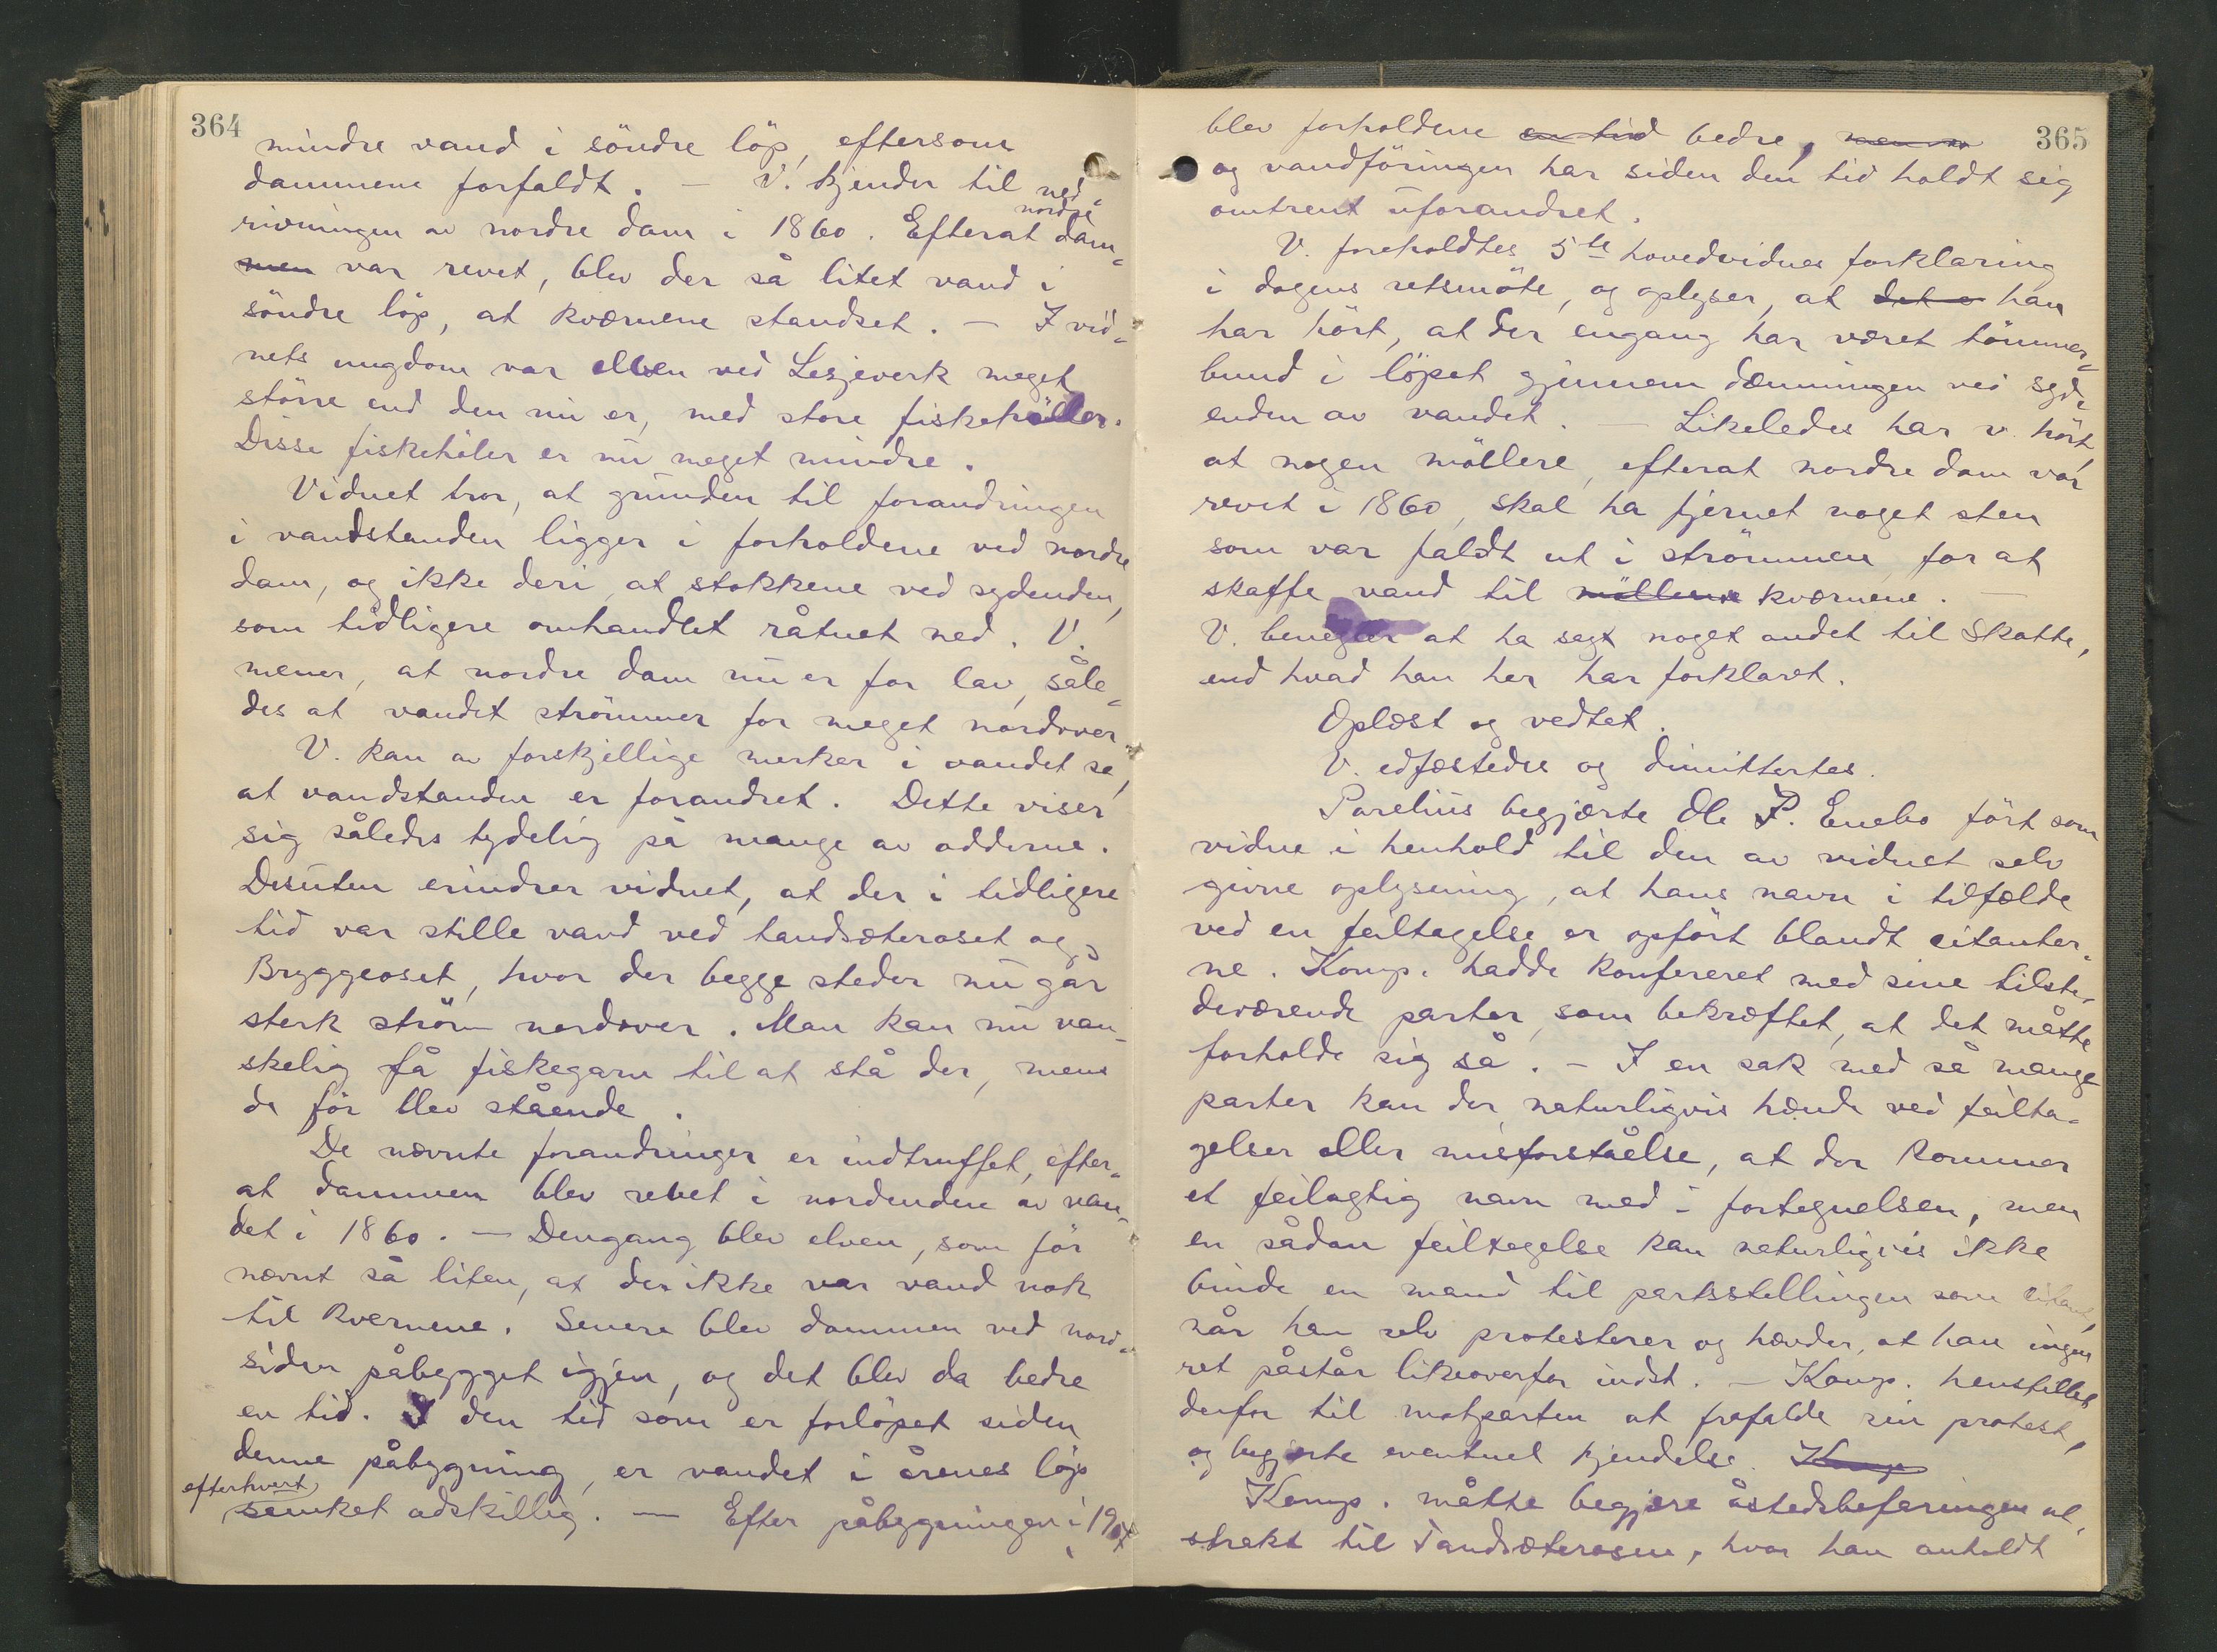 364
mindre vand i söndre löp, eftersom
dammene forfaldt. — V. kjender til ned-
rivningen av nordre dam i 1860. Efterat nordre dam-
men var revet, blev der så litet vand i
söndre löp, at kvœrnene standset. — I vid-
nets ungdom var elven ved Lesjeverk meget
större end den nu er, med store fiskehöller.
Disse fiskehöler er nu meget mindre.
Vidnet tror, at grunden til forandringen
i vandstanden ligger i forholdene ved nordre
dam, og ikke deri, at stokkene ved sydenden,
som tidligere omhandlet råtnet ned. V.
mener, at nordre dam nu er for lav, såle-
des at vandet strömmer for meget nordover.
V. kan av forskjellige merker i vandet se,
at vandstanden er forandret. Dette viser
sig således tydelig på mange av odderne.
Desuten erindrer vidnet, at der i tidligere
tid var stille vand ved tandsæteroset og
Bryggeoset, hvor der begge steder nu går
sterk ström nordover. Man kan nu van-
skelig få fiskegarn til at stå der, mens
de för blev stående.
De nævnte forandringer er indtruffet, efter-
at dammen blev revet i nordenden av van-
det i 1860. — Dengang blev elven, som för
nævnt så liten, at der ikke var vand nok
til kvernene. Senere blev dammen ved nord-
siden påbygget igjen, og det blev da bedre
en tid. I den tid som er forlöpet siden
denne påbygning, er vandet i årenes löp
efterhvert
senket adskillig. — Efter påbygningen i
365
blev forholdene en tid bedre,
og vandföringen har siden den tid holdt sig
omtrent uforandret.
V. foreholdtes 5te hovedvidnes forklaring
i dagens retsmöte, og oplyser, at det e han
har hört, at der engang har været tömmer-
bund i löpet gjennem dæmningen ved syd-
enden av vandet. — Likeledes har v. hört,
at nogen möllere, efterat nordre dam var
revet i 1860, skal ha fjernet noget sten
som var faldt ut i strömmen, for at
skaffe vand til möllene kvœrnene. —
V. benegter at ha sagt noget andet til Skotte,
end hvad han her har forklart.
Oplæst og vedtat.
V. edfæstedes og dimittertes.
Parelius begjærte Ole P. Enebo fört som
vidne i henhold til den av vidnet selv
givne oplysning, at hans navn i tilfælde
ved en feiltagelse er opfört blandt citanter-
ne. Komp. hadde konfereret med sine tilste-
deværende parter, som bekræftet, at det måtte
forholde sig så. — I en sak med så mange
parter kan der naturligvis hænde ved feilta-
gelser eller misforståelse, at der kommer
et feilagtig navn med i fortegnelsen, men
en sådan feiltagelse kan naturligvis ikke
binde en mand til partsstillingen som citant,
når han selv protesterer og hævder, at han ingen
ret påstår likeoverfor indst. — Komp. henstillet
derfor til motparten at frafalde sin protest,
og begjærte eventuel kjendelse. Komp
Komp. måtte begjære åstedsbefaringen ut-
strakt til Tandsæterosen, hvor han anholdt